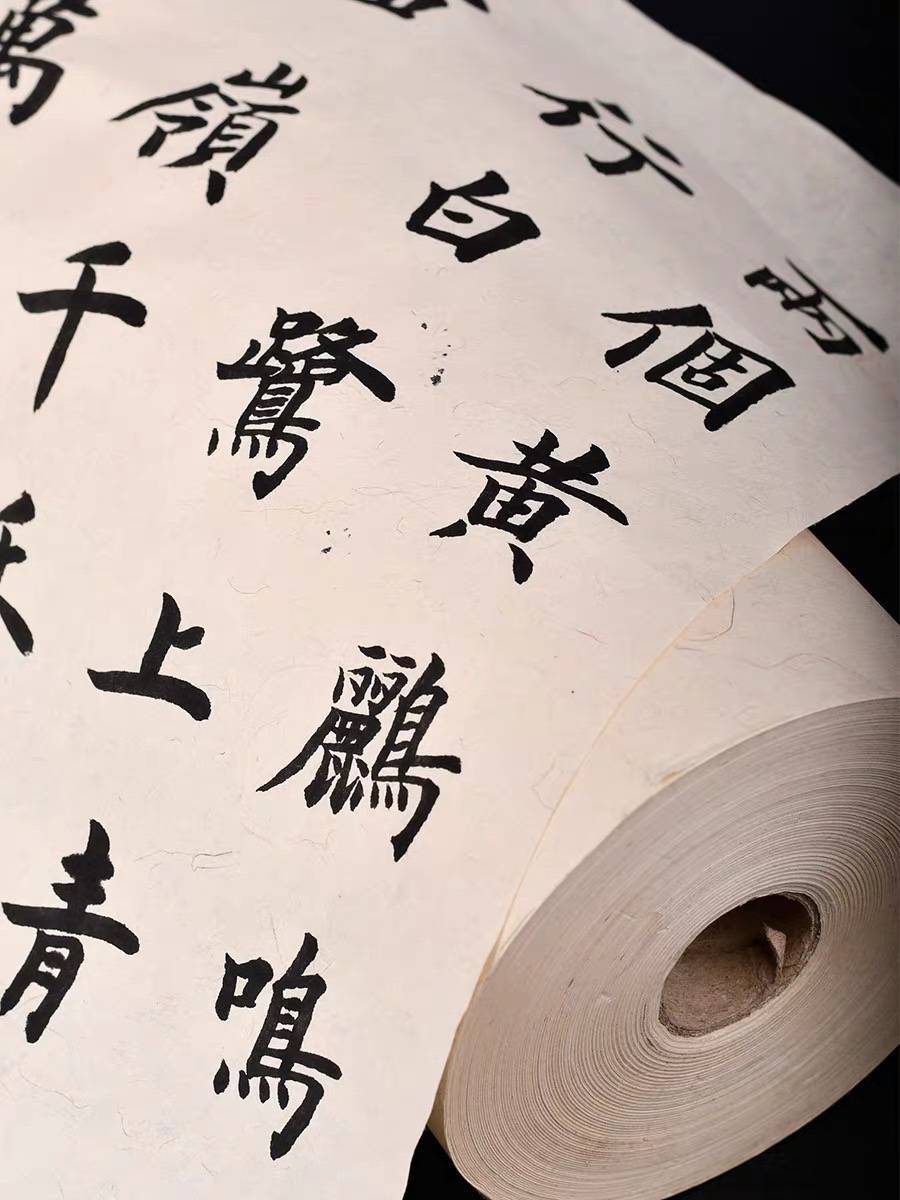 兩個黄鸝鳴
行白鷺上青
嶺千
萬